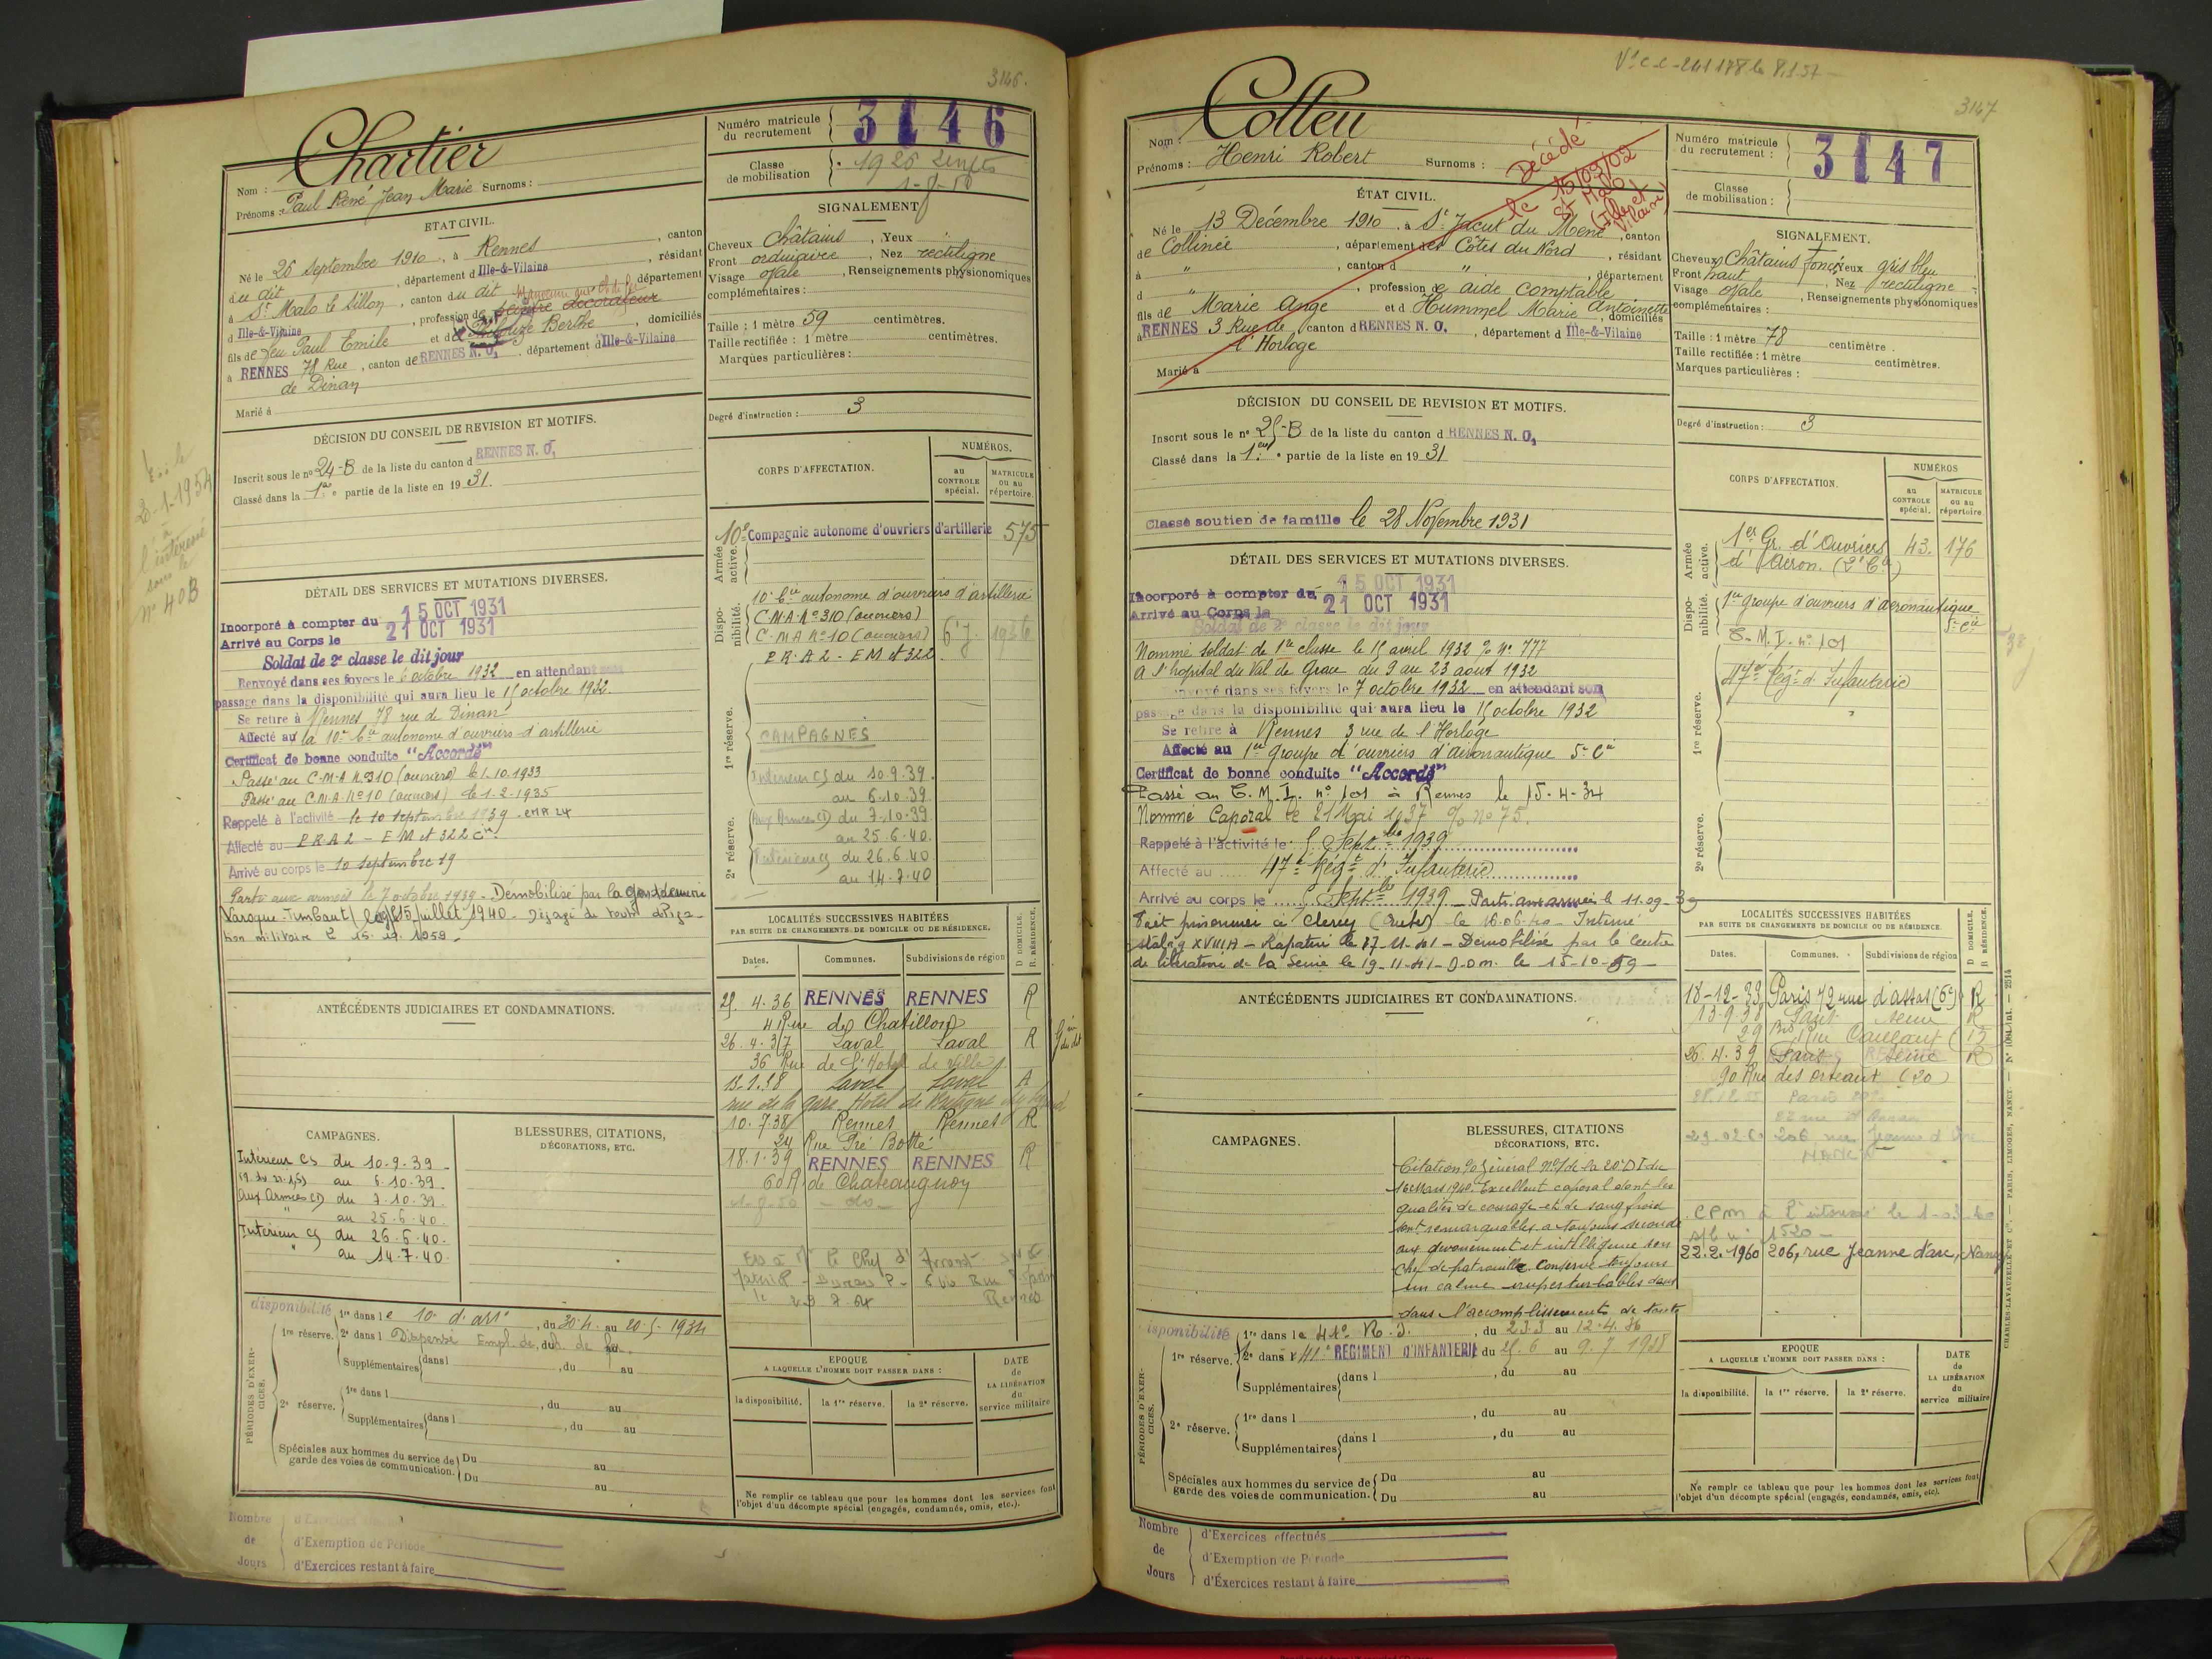 3146.
Chartier
Nom :
Prénoms : Paul René Jean Marie Surnoms :
Numéro matricule
du recrutement
3146
Classe
de mobilisation
ÉTAT CIVIL.
Né le 26 septembre 1910, à Rennes, canton
du dit, département d Ille-&-Vilaine, résidant
à St Malo le Sillon, canton du dit, département
d Ille-&-Vilaine, profession de peintre décorateur
fils de feu Paul Emile et de Berthe, domiciliés
à RENNES 78 Rue, canton de RENNES N. O., département d Ille-&-Vilaine
de Dinan
Marié à
SIGNALEMENT
Cheveux Châtains, Yeux
Front ordinaire, Nez rectiligne
Visage ovale, Renseignements physionomiques
complémentaires :
Taille : 1 mètre 59 centimètres.
Taille rectifiée : 1 mètre centimètres.
Marques particulières :
Degré d'instruction : 3
DÉCISION DU CONSEIL DE REVISION ET MOTIFS.
Inscrit sous le n° 24-B de la liste du canton d RENNES N. O.
Classé dans la 1re partie de la liste en 1931.
2-1-1954
à
l'intéressé
sous le
n° 40B
DÉTAIL DES SERVICES ET MUTATIONS DIVERSES.
Incorporé à compter du 15 OCT 1931
Arrivé au Corps le 21 OCT 1931
Soldat de 2e classe le dit jour
Renvoyé dans ses foyers le 6 octobre 1932 en attendant son
passage dans la disponibilité qui aura lieu le 15 octobre 1932
Se retire à Rennes 78 rue de Dinan
Affecté au la 10e Cie autonome d'ouvriers d'artillerie
Certificat de bonne conduite "Accordé"
Passé au C.M.A. N°310 (ouvriers) le 1.10.1933
Passé au C.M.A. N°10 (ouvriers) le 1-2-1935
Rappelé à l'activité le 10 septembre 1939
Affecté au P.R.A 2 - E M et 322 Cie
Arrivé au corps le 10 septembre 19
Parti aux armées le 7 octobre 1939 - Démobilisé par la gendarmerie
Laroque-Timbaut le 15 juillet 1940 - Dégagé de toute obliga-
tion militaire le 15.10.1959 -
CORPS D'AFFECTATION.
NUMÉROS.
au
CONTROLE
spécial.
MATRICULE
ou au
répertoire.
Armée
active.
10e Compagnie autonome d'ouvriers d'artillerie 575
Dispo-
nibilité.
10e Cie autonome d'ouvriers d'artillerie
C.M.A. N°310 (ouvriers)
C.M.A N°10 (ouvriers)
P.R.A 2 - E M et 322
1re réserve.
CAMPAGNES
Intérieur CS du 10.9.39
au 6.10.39
Aux Armées CD du 7.10.39
au 25.6.40.
Intérieur CS du 26.6.40
au 14.7.40
2e réserve.
LOCALITÉS SUCCESSIVES HABITÉES
PAR SUITE DE CHANGEMENTS DE DOMICILE OU DE RÉSIDENCE.
Dates. Communes. Subdivisions de région
D DOMICILE.
R. RÉSIDENCE.
25.4.36 RENNES RENNES R
4 Rue de Chatillon
26.4.37 Laval Laval R
36 Rue de l'Hotel de Ville
13.1.38 Laval Laval
rue de la gare Hotel de Bretagne
10.7.38 Rennes Rennes R
24 Rue Pré Botté
18.1.39 RENNES RENNES R
6 d R. de Chateaugiron
ANTÉCÉDENTS JUDICIAIRES ET CONDAMNATIONS.
CAMPAGNES.
Intérieur CS du 10.9.39
au 6.10.39.
Aux Armées CD du 7.10.39.
au 25.6.40.
Intérieur CS du 26.6.40.
au 14.7.40.
BLESSURES, CITATIONS,
DÉCORATIONS, ETC.
PÉRIODES D'EXER-
CICES.
disponibilité
1re réserve.
1re dans le 10e d'art, du 30.4. au 20.5.1934
2e dans l Dispensé
Supplémentaires dans l, du au
2e réserve.
1re dans l, du au
Supplémentaires dans l, du au
Spéciales aux hommes du service de
garde des voies de communication.
Du au
Du au
EPOQUE
A LAQUELLE L'HOMME DOIT PASSER DANS :
la disponibilité. la 1re réserve. la 2e réserve.
DATE
de
LA LIBÉRATION
du
service militaire
Ne remplir ce tableau que pour les hommes dont les services font
l'objet d'un décompte spécial (engagés, condamnés, omis, etc.).
Nombre
de
Jours
d'Exemption de Période
d'Exercices restant à faire
3147
Colleu
Nom :
Prénoms : Henri Robert Surnoms :
Décédé
le 15/09/02
St Malo
(Ille et
Vilaine)
Numéro matricule
du recrutement :
3147
Classe
de mobilisation :
ÉTAT CIVIL.
Né le 13 Décembre 1910, à St Jacut du Mené, canton
de Collinée, département des Côtes du Nord, résidant
à " , canton d " , département
d " , profession d aide comptable
fils de Marie Ange et d Hummel Marie Antoinette, domiciliés
à RENNES 3 Rue de, canton d RENNES N. O., département d Ille-&-Vilaine
l'Horloge
Marié à
SIGNALEMENT.
Cheveux Châtains foncé Yeux gris bleu
Front haut, Nez rectiligne
Visage ovale, Renseignements physionomiques
complémentaires :
Taille : 1 mètre 78 centimètre.
Taille rectifiée : 1 mètre centimètres.
Marques particulières :
Degré d'instruction : 3
DÉCISION DU CONSEIL DE REVISION ET MOTIFS.
Inscrit sous le n° 25-B de la liste du canton d RENNES N. O.
Classé dans la 1ere partie de la liste en 1931
Classé soutien de famille le 28 Novembre 1931
DÉTAIL DES SERVICES ET MUTATIONS DIVERSES.
Incorporé à compter du 15 OCT 1931
Arrivé au Corps le 21 OCT 1931
Soldat de 2e classe le dit jour
Nommé soldat de 1re classe le 15 avril 1932 % N° 777
A l'hopital du Val de Grace du 9 au 23 aout 1932
Renvoyé dans ses foyers le 7 octobre 1932 en attendant son
passage dans la disponibilité qui aura lieu le 15 octobre 1932
Se retire à Rennes 3 rue de l'Horloge
Affecté au 1er Groupe d'ouvriers d'aéronautique 5e Cie
Certificat de bonne conduite "Accordé"
Passé au C.M.I. n° 101 à Rennes le 15-4-34
Nommé Caporal le 21 Mai 1937 % No 75.
Rappelé à l'activité le 5 Septbre 1939
Affecté au 47e Régt d'Infanterie
Arrivé au corps le 5 Septbre 1939 - Parti aux armées le 11.09-39
Fait prisonnier à Clerey (Aube) le 16.06.40 - Interné
stalag XVIIIA - Rapatrié le 17-11-41 - Démobilisé par le Centre
de libération de la Seine le 19-11-41 - D.O.M. le 15-10-59 -
CORPS D'AFFECTATION.
NUMÉROS
au
CONTROLE
spécial.
MATRICULE
ou au
répertoire.
Armée
active.
1er Gr. d'Ouvriers 43. 176
d'Aéron. (2e Cie)
Dispo-
nibilité.
1er groupe d'ouvriers d'aéronautique
5e Cie
C.M.I. n° 101
1re réserve.
47e Régt d'Infanterie
2e réserve.
LOCALITÉS SUCCESSIVES HABITÉES
PAR SUITE DE CHANGEMENTS DE DOMICILE OU DE RÉSIDENCE.
Dates. Communes. Subdivisions de région
D DOMICILE.
R RÉSIDENCE.
18-12-33 Paris 72 rue d'assas (6e) R
13.9.38 Paris Seine R
29 bis Rue Vaillant (15
26.4.39 Paris Seine R
90 Rue des Orteaux (20)
23.02.60 206, rue Jeanne d'Arc
NANCY
22.2.1960 206, rue Jeanne d'arc, Nancy
ANTÉCÉDENTS JUDICIAIRES ET CONDAMNATIONS.
CAMPAGNES.
BLESSURES, CITATIONS
DÉCORATIONS, ETC.
Citation % Général N°1 de la 20e DI du
16 Mars 1940. Excellent caporal dont les
qualités de courage et de sang froid
sont remarquables. a toujours secondé
avec dévouement et intelligence son
Chef de patrouille. Conserve toujours
un calme imperturbable dans
dans l'accomplissement de toute
PÉRIODES D'EXER-
CICES.
disponibilité
1re réserve.
1re dans le 41e R.I., du 23.3 au 12.4.36
2e dans l 41e REGIMENT D'INFANTERIE du 25.6 au 9.7 1938
Supplémentaires dans l, du au
2e réserve.
1re dans l, du au
Supplémentaires dans l, du au
Spéciales aux hommes du service de
garde des voies de communication.
Du au
Du au
EPOQUE
A LAQUELLE L'HOMME DOIT PASSER DANS :
la disponibilité. la 1re réserve. la 2e réserve.
DATE
de
LA LIBÉRATION
du
service militaire
Ne remplir ce tableau que pour les hommes dont les services font
l'objet d'un décompte spécial (engagés, condamnés, omis, etc.).
CHARLES-LAVAUZELLE ET Cie. — PARIS, LIMOGES, NANCY.
Nombre
de
Jours
d'Exercices effectués
d'Exemption de Période
d'Exercices restant à faire